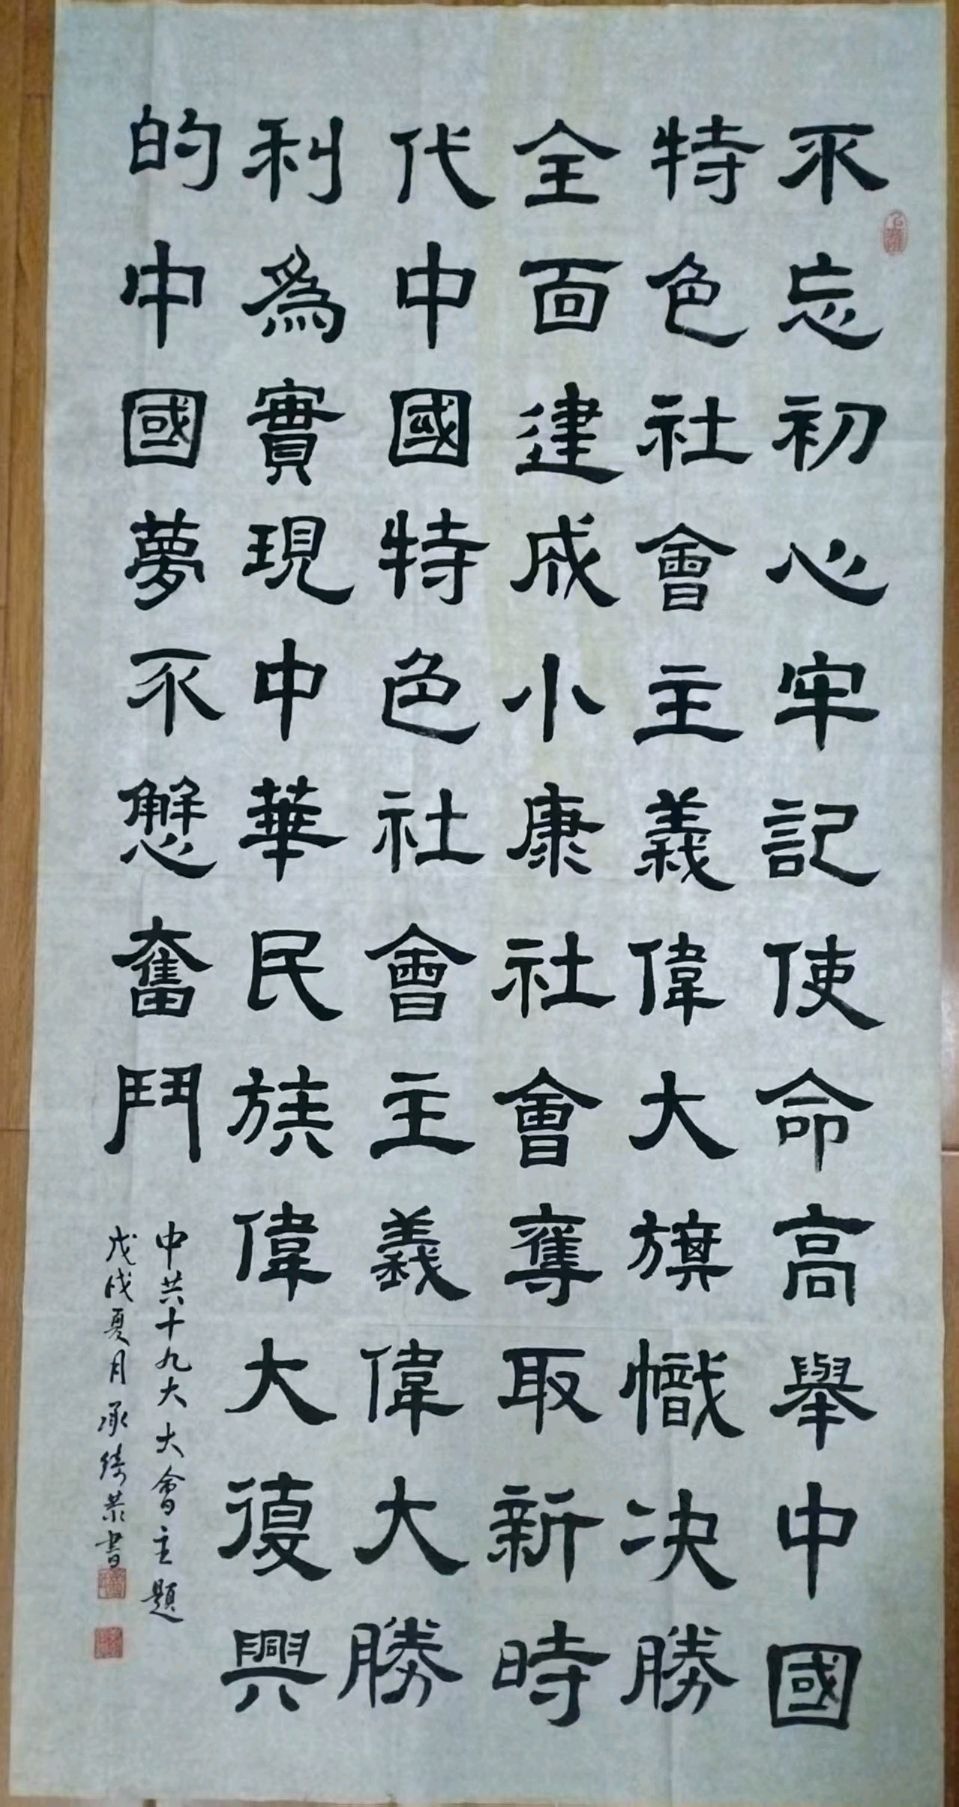 不忘初心牢記使命高舉中國
特色社會主義偉大旗幟决勝
全面建成小康社會奪取新時
代中國特色社會主義偉大勝
利為實現中華民族偉大復興
的中國夢不懈奮鬥
中共十九大大會主題
戊戌夏月承綺恭書